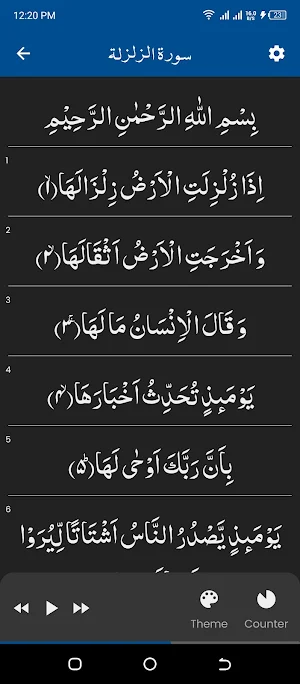 12:20 PM 16.0 K/s 23
سورة الزلزلة
بِسْمِ اللهِ الرَّحْمٰنِ الرَّحِيْمِ
1
اِذَا زُلْزِلَتِ الْاَرْضُ زِلْزَالَهَا(۱)
2
وَ اَخْرَجَتِ الْاَرْضُ اَثْقَالَهَا(۲)
3
وَ قَالَ الْاِنْسَانُ مَا لَهَا(۳)
4
یَوْمَىٕذٍ تُحَدِّثُ اَخْبَارَهَا(۴)
5
بِاَنَّ رَبَّكَ اَوْحٰى لَهَا(۵)
6
یَوْمَىٕذٍ یَّصْدُرُ النَّاسُ اَشْتَاتًا لِّیُرَوْا
Theme Counter